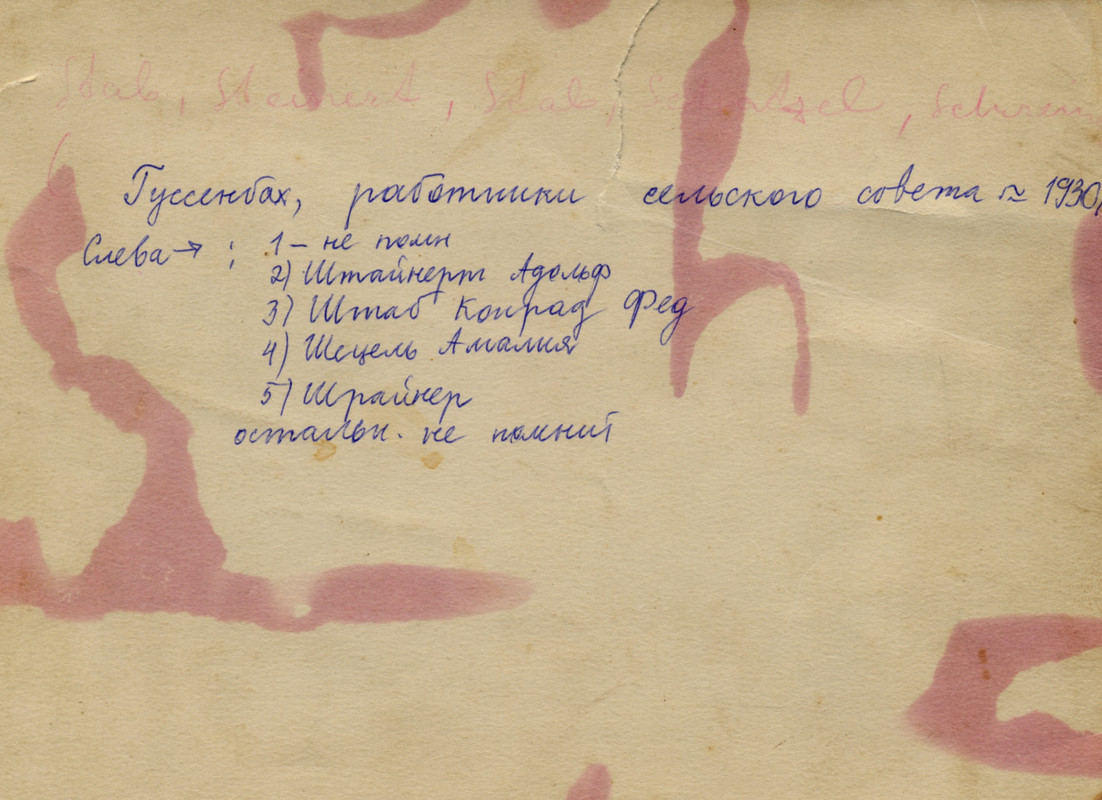 Stab, Steinert, Stab,
Гуссенбах, работники сельского совета ≈ 1930
Слева → : 1 – не помн
2) Штайнерт Адольф
3) Штаб Конрад Фед
4) Шецель Амалия
5) Шрайнер
остальн. не помнит